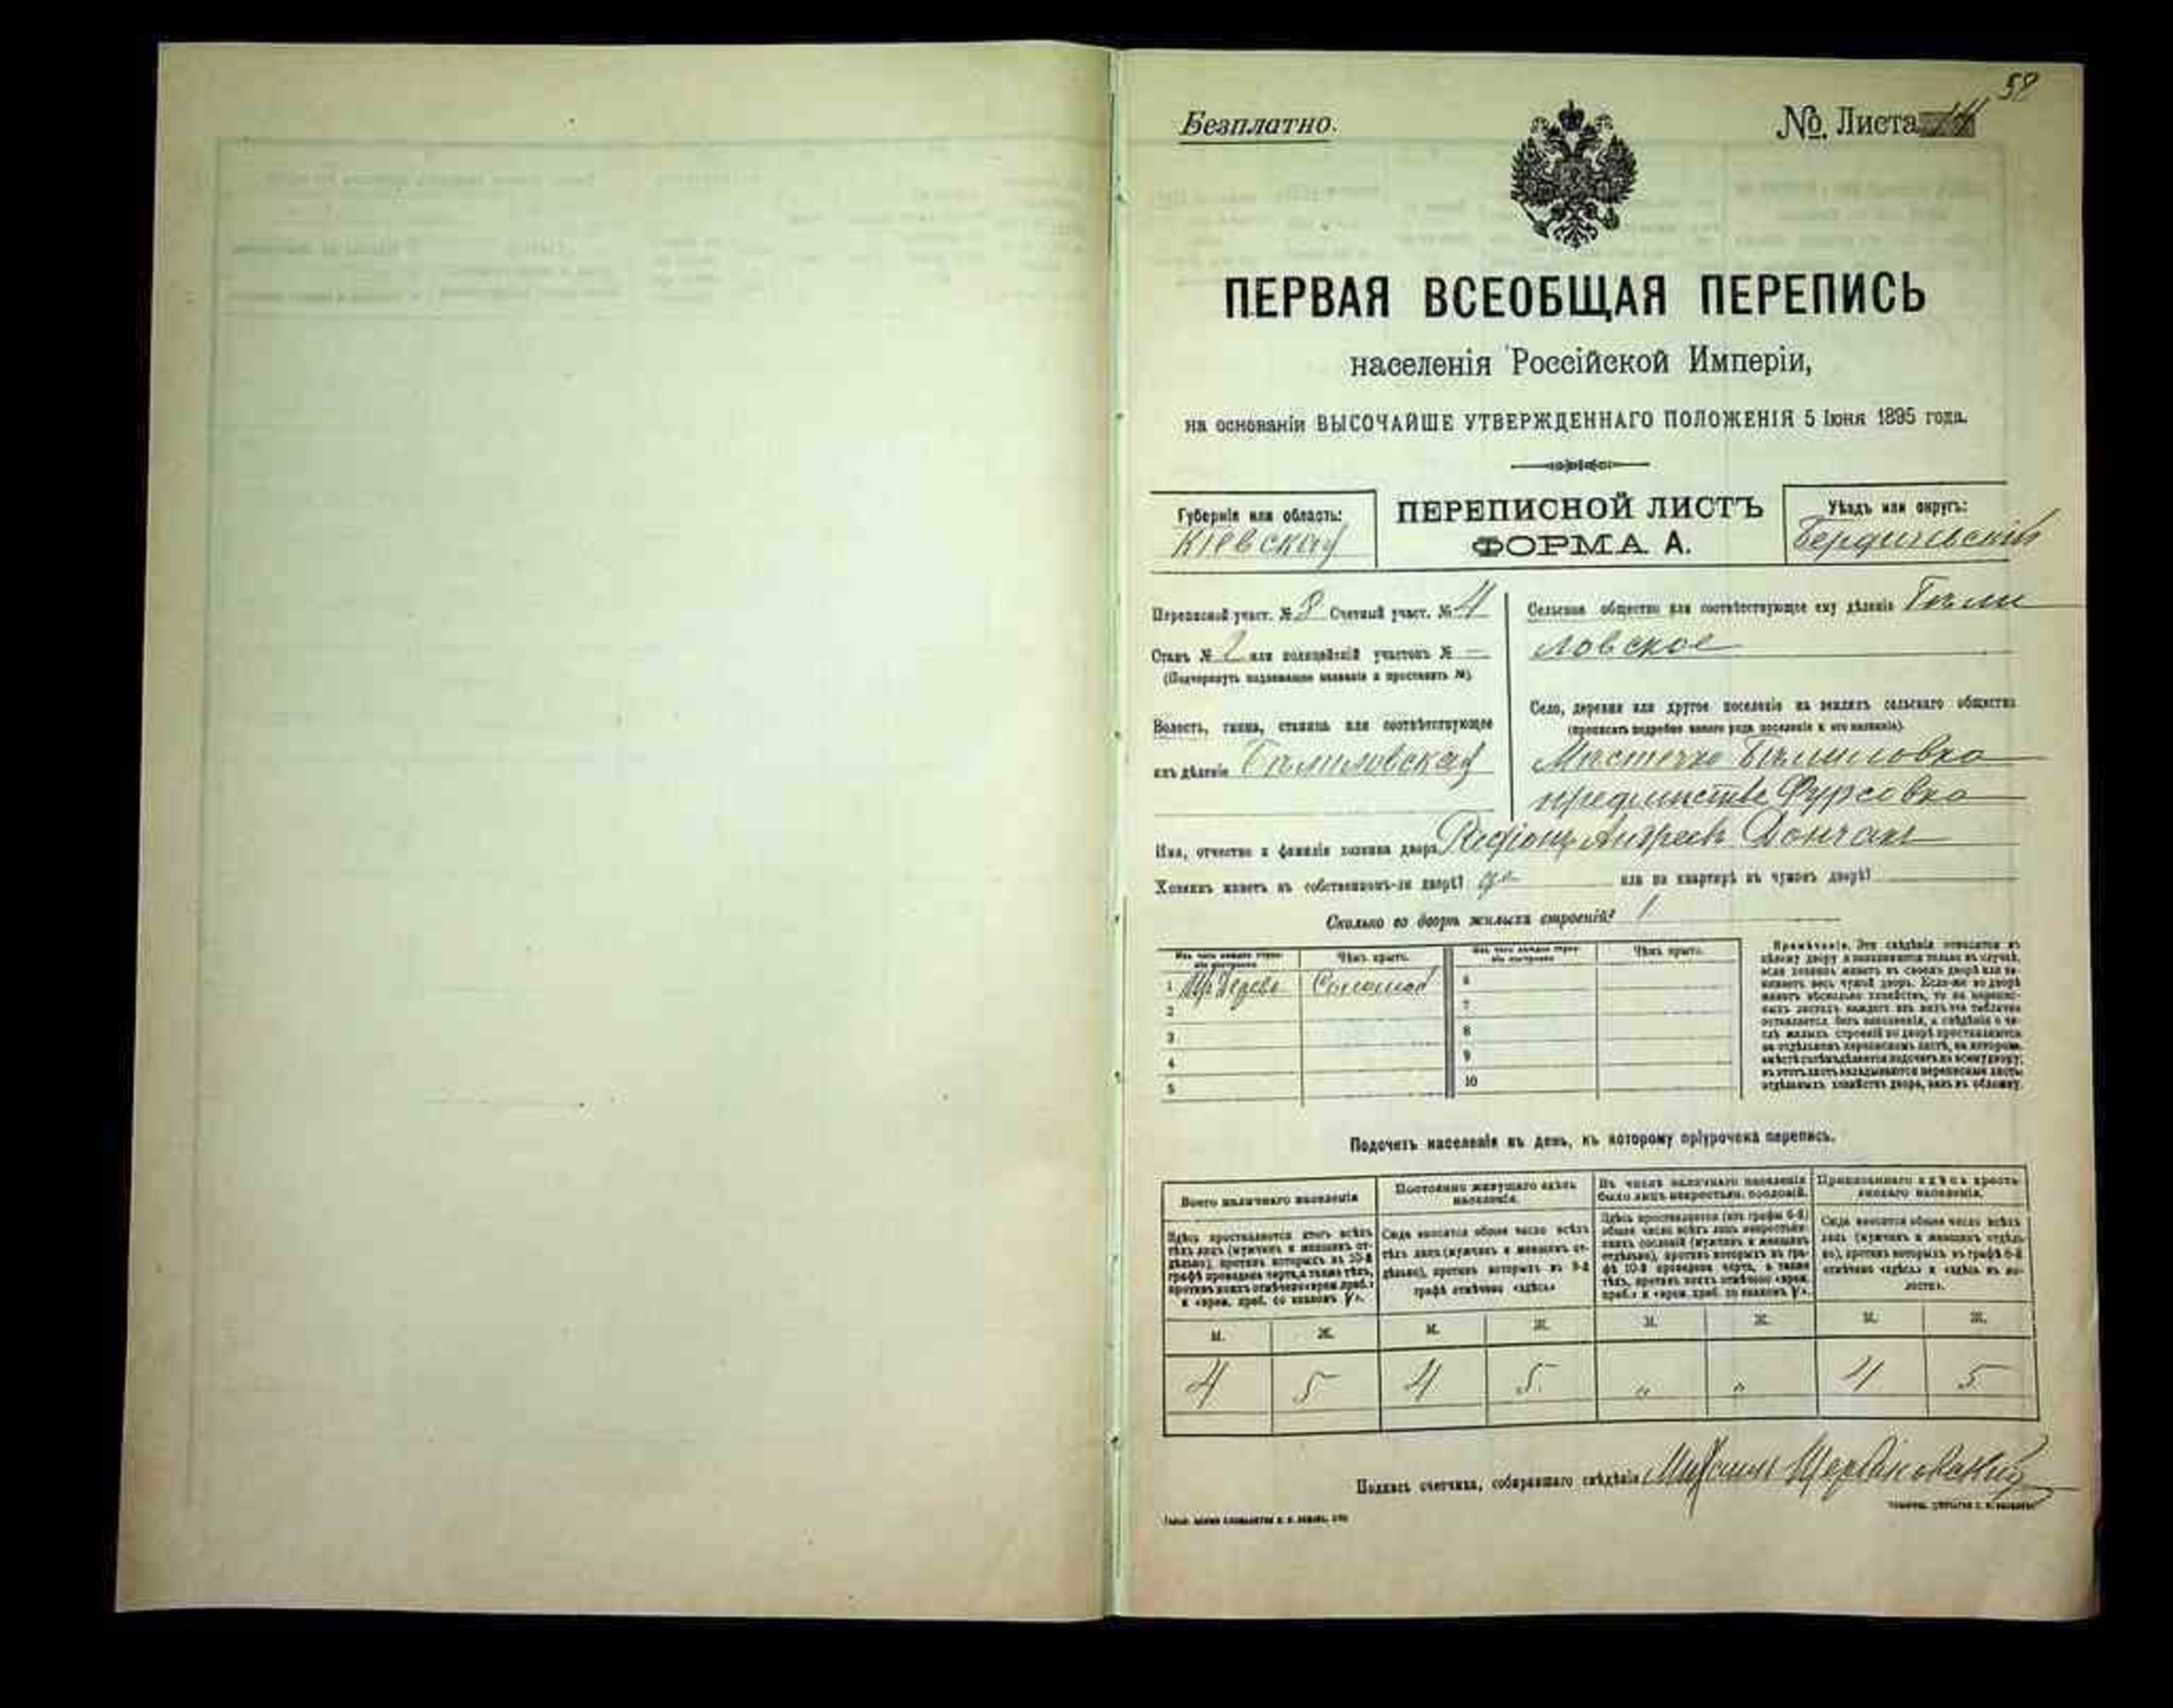 58
Безплатно.
№. Листа 14
ПЕРВАЯ ВСЕОБЩАЯ ПЕРЕПИСЬ
населенія Россійской Имперіи,
на основаніи ВЫСОЧАЙШЕ УТВЕРЖДЕННАГО ПОЛОЖЕНІЯ 5 Іюня 1895 года.
Губернія или область:
Кіевская
ПЕРЕПИСНОЙ ЛИСТЪ
ФОРМА А.
Уѣздъ или округъ:
Бердичевскій
Переписной участ. № 8 Счетный участ. № 4
Станъ № 2 или полицейскій участокъ № —
(Подчеркнуть надлежащее названіе и проставить №).
Волость, гмина, станица или соотвѣтствующее
имъ дѣленіе
Сельское общество или соотвѣтствующее ему дѣленіе
ловское
Село, деревня или другое поселеніе на земляхъ сельскаго общества
(прописать подробно какого рода поселеніе и его названіе).
Фурсовка
Имя, отчество и фамилія хозяина двора Андреевъ Дончакъ
Хозяинъ живетъ въ собственномъ-ли дворѣ? да или на квартирѣ въ чужомъ дворѣ?
Сколько во дворѣ жилыхъ строеній? 1
Изъ чего каждое строеніе построено
Чѣмъ крыто.
Изъ чего каждое строеніе построено
Чѣмъ крыто.
1 Соломой
2
3
4
5
6
7
8
9
10
Примѣчаніе. Эти свѣдѣнія относятся къ
цѣлому двору и заполняются только въ случаѣ,
если хозяинъ живетъ въ своемъ дворѣ или за-
нимаетъ весь чужой дворъ. Если-же во дворѣ
живетъ нѣсколько хозяйствъ, то на перепис-
ныхъ листахъ каждаго изъ нихъ эта табличка
оставляется безъ заполненія, а свѣдѣнія о чи-
слѣ жилыхъ строеній во дворѣ проставляются
на отдѣльномъ переписномъ листѣ, на которомъ
вмѣстѣ съ тѣмъ дѣлается подсчетъ по всему двору;
въ этотъ листъ вкладываются переписные листы
отдѣльныхъ хозяйствъ двора, какъ въ обложку.
Подсчетъ населенія въ день, къ которому пріурочена перепись.
Всего наличнаго населенія
Постоянно живущаго здѣсь
населенія.
Въ числѣ наличнаго населенія
было лицъ некрестьян. сословій.
Приписаннаго здѣсь кресть-
янскаго населенія.
Здѣсь проставляется итогъ всѣхъ
тѣхъ лицъ (мужчинъ и женщинъ от-
дѣльно), противъ которыхъ въ 10-й
графѣ проведена черта, а также тѣхъ,
противъ коихъ отмѣчено «врем. преб.»
и «врем. преб. со знакомъ V».
Сюда вносится общее число всѣхъ
тѣхъ лицъ (мужчинъ и женщинъ от-
дѣльно), противъ которыхъ въ 9-й
графѣ отмѣчено «здѣсь»
Здѣсь проставляется (изъ графы 6-й)
общее число всѣхъ лицъ некрестьян-
скихъ сословій (мужчинъ и женщинъ
отдѣльно), противъ которыхъ въ гра-
фѣ 10-й проведена черта, а также
тѣхъ, противъ коихъ отмѣчено «врем.
преб.» и «врем. преб. со знакомъ V».
Сюда вносится общее число всѣхъ
лицъ (мужчинъ и женщинъ отдѣль-
но), противъ которыхъ въ графѣ 8-й
отмѣчено «здѣсь» и «здѣсь въ во-
лости».
М. Ж. М. Ж. М. Ж. М. Ж.
4 5 4 5 „ „ 4 5
Подпись счетчика, собиравшаго свѣдѣнія Михаилъ